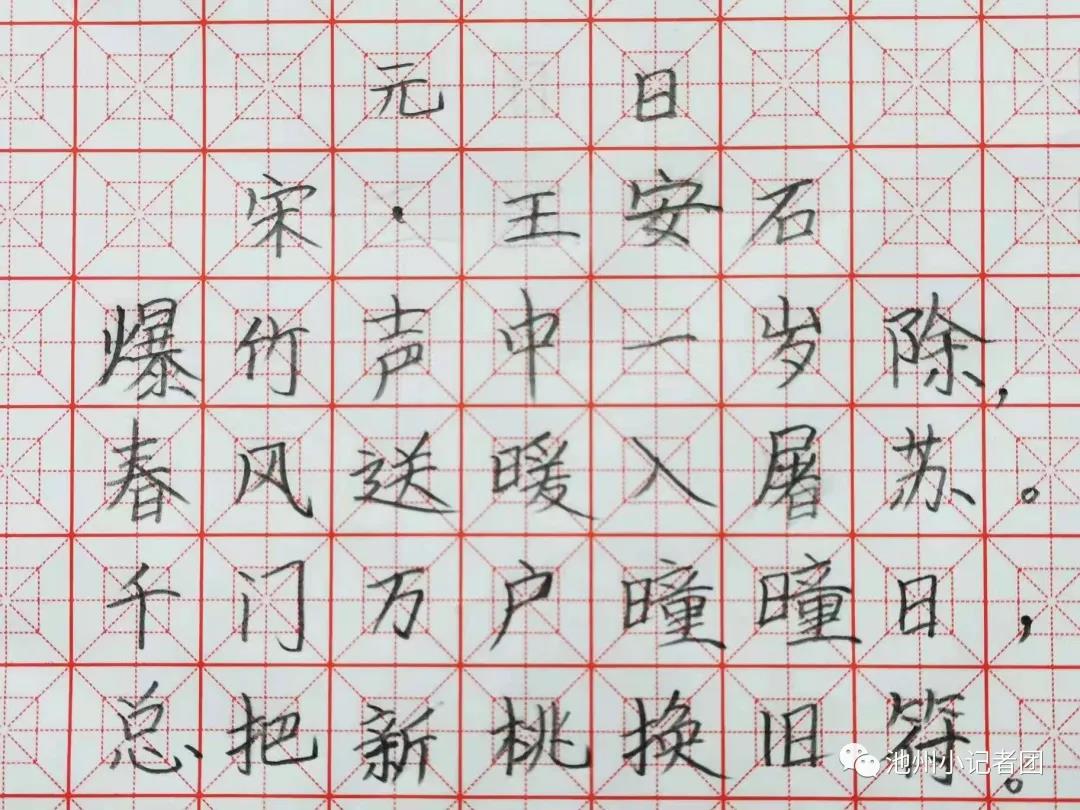 元日
宋·王安石
爆竹声中一岁除，
春风送暖入屠苏。
千门万户曈曈日，
总把新桃换旧符。
池州小记者团